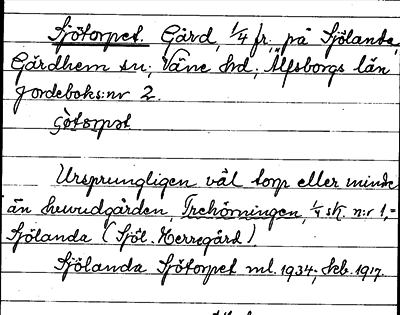 Sjötorpet. Gård, 1/4 fr. på Sjölanda,
Gärdhem sn; Väne hd; Älfsborgs län
Jordeboks:nr 2.
Sjötorpet
Ursprungligen väl torp eller mindre
än huvudgården, Trehörningen, 1/4 sk. n:r 1,=
Sjölanda (Sjöl. Herregård).
Sjölanda Sjötorpet ml. 1934; hkb. 1917.